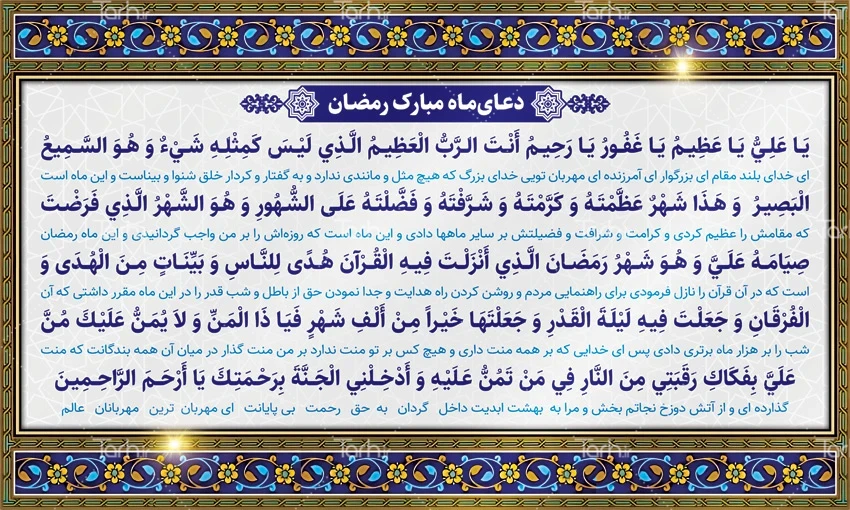 دعای ماه مبارک رمضان
يَا عَلِيُّ يَا عَظِيمُ يَا غَفُورُ يَا رَحِيمُ أَنْتَ الرَّبُّ الْعَظِيمُ الَّذِي لَيْسَ كَمِثْلِهِ شَيْءٌ وَ هُوَ السَّمِيعُ
ای خدای بلند مقام ای بزرگوار ای آمرزنده ای مهربان تویی خدای بزرگ که هیچ مثل و مانندی ندارد و به گفتار و کردار خلق شنوا و بیناست و این ماه است
الْبَصِيرُ وَ هَذَا شَهْرٌ عَظَّمْتَهُ وَ كَرَّمْتَهُ وَ شَرَّفْتَهُ وَ فَضَّلْتَهُ عَلَى الشُّهُورِ وَ هُوَ الشَّهْرُ الَّذِي فَرَضْتَ
که مقامش را عظیم کردی و کرامت و شرافت و فضیلتش بر سایر ماهها دادی و این ماه است که روزه‌اش را بر من واجب گردانیدی و این ماه رمضان
صِيَامَهُ عَلَيَّ وَ هُوَ شَهْرُ رَمَضَانَ الَّذِي أَنْزَلْتَ فِيهِ الْقُرْآنَ هُدًى لِلنَّاسِ وَ بَيِّنَاتٍ مِنَ الْهُدَى وَ
است که در آن قرآن را نازل فرمودی برای راهنمایی مردم و روشن کردن راه هدایت و جدا نمودن حق از باطل و شب قدر را در این ماه مقرر داشتی که آن
الْفُرْقَانِ وَ جَعَلْتَ فِيهِ لَيْلَةَ الْقَدْرِ وَ جَعَلْتَهَا خَيْراً مِنْ أَلْفِ شَهْرٍ فَيَا ذَا الْمَنِّ وَ لاَ يُمَنُّ عَلَيْكَ مُنَّ
شب را بر هزار ماه برتری دادی پس ای خدایی که بر همه منت داری و هیچ کس بر تو منت ندارد بر من منت گذار در میان آن همه بندگانت که منت
عَلَيَّ بِفَكَاكِ رَقَبَتِي مِنَ النَّارِ فِي مَنْ تَمُنُّ عَلَيْهِ وَ أَدْخِلْنِي الْجَنَّةَ بِرَحْمَتِكَ يَا أَرْحَمَ الرَّاحِمِينَ
گذارده ای و از آتش دوزخ نجاتم بخش و مرا به بهشت ابدیت داخل گردان به حق رحمت بی پایانت ای مهربان ترین مهربانان عالم